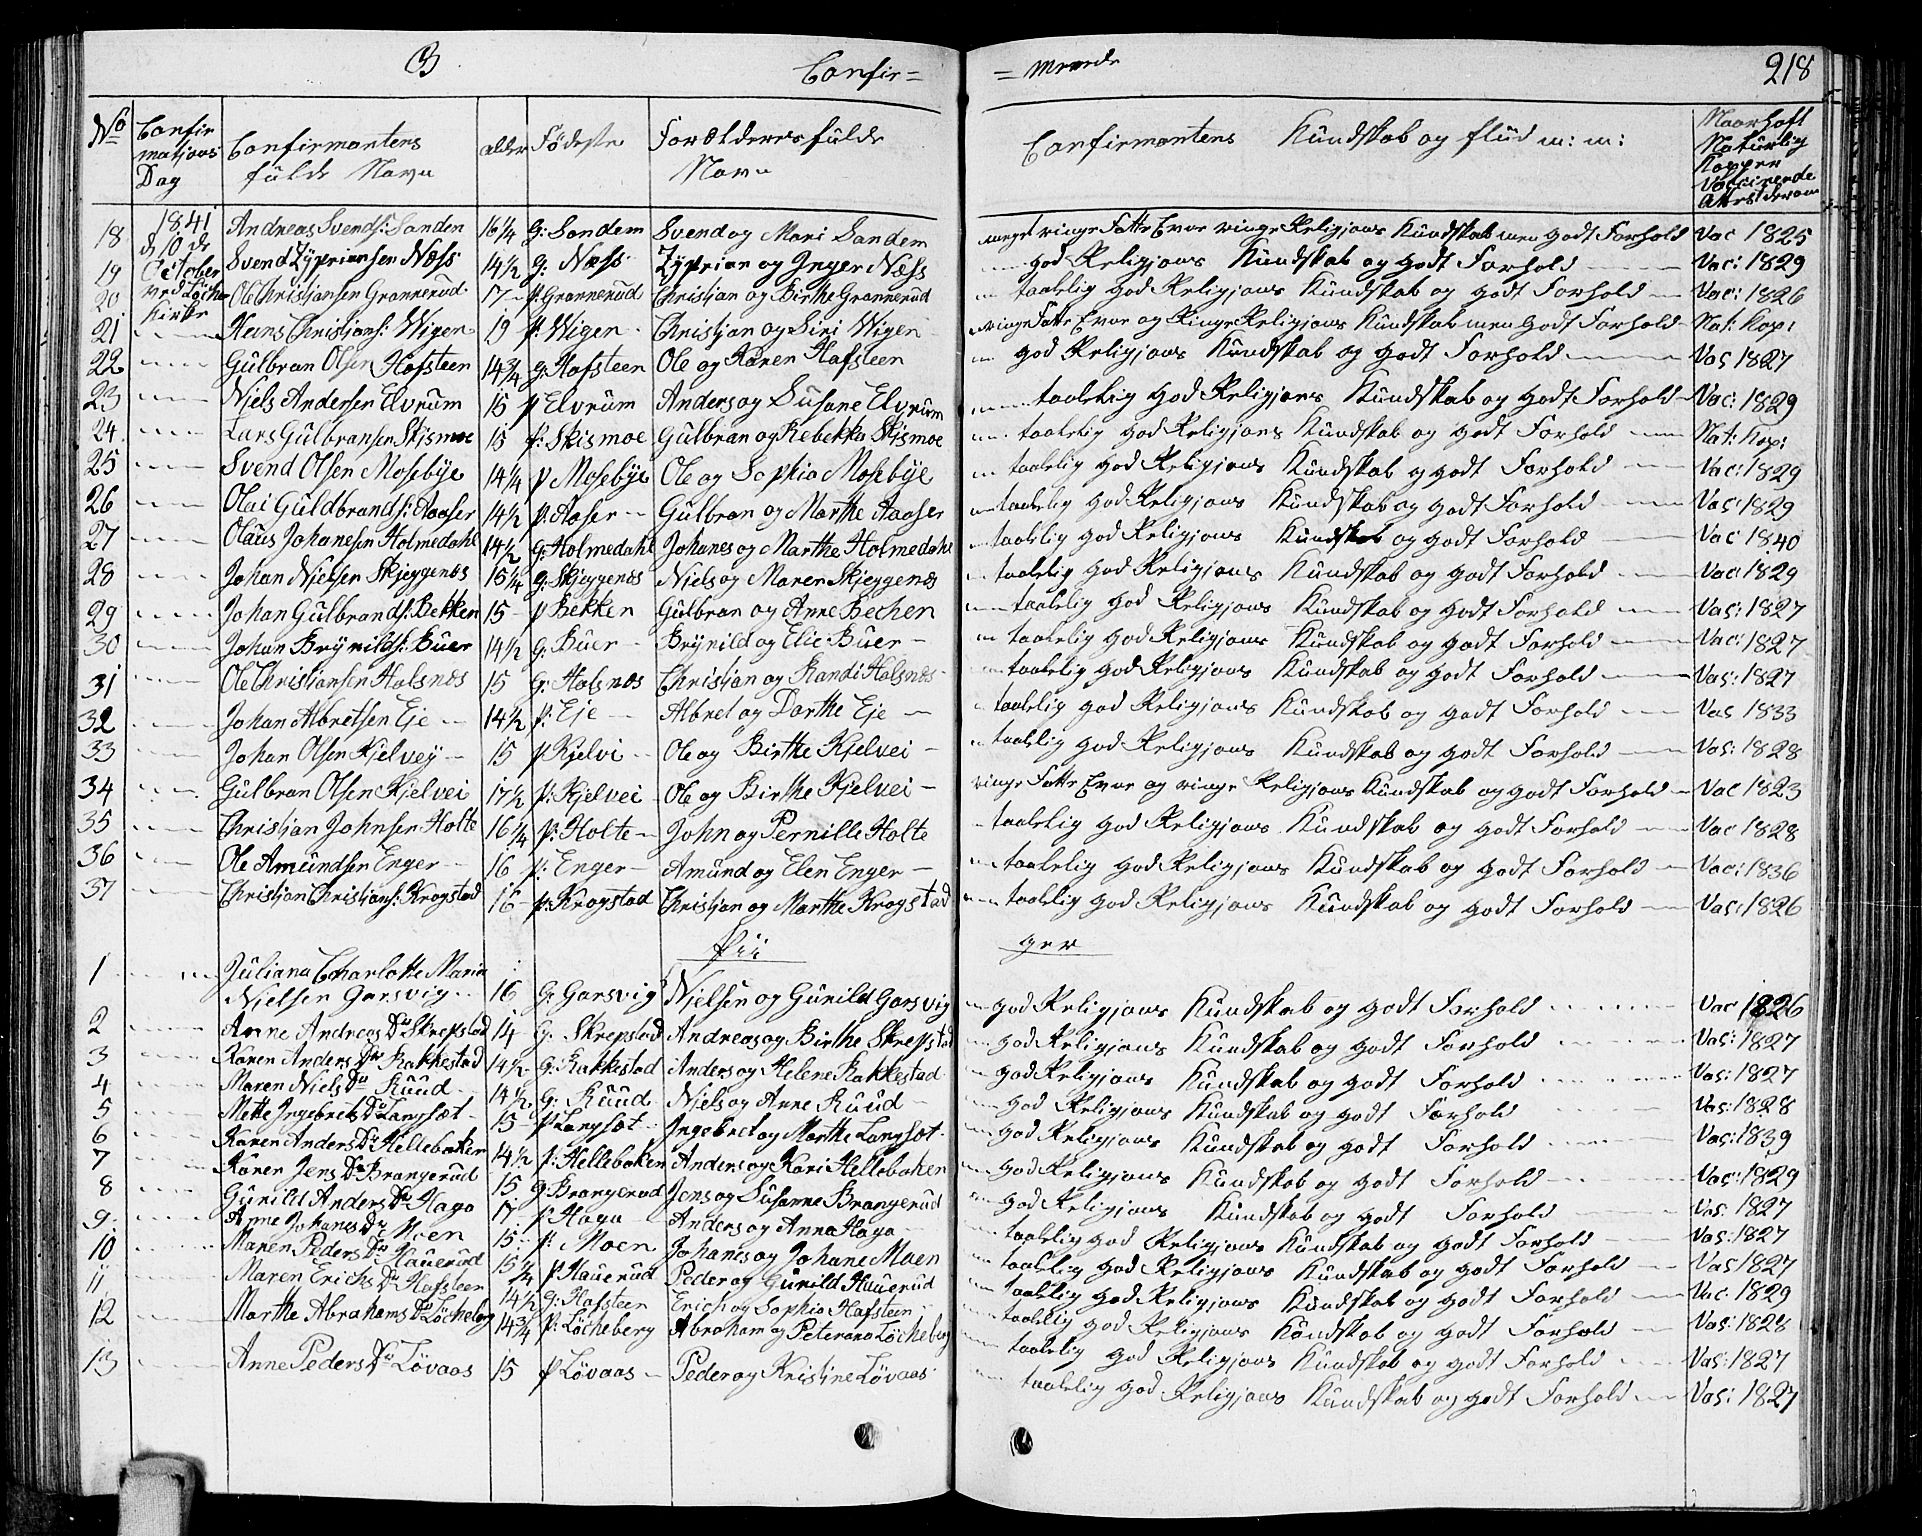 B
Confir= =merede 218
No Confirmatjons Dag Confirmantens fulde Navn alder Fødeste Forælderes fulde Navn Confirmantens Kundskab og flud m: m: Naar haft Naturlig Kopper Vaccinerede Attest derom
18 1841 d 10 de October ved Løche Kirke Andreas Svends: Sanden 16 1/4 g: Sandem Svend og Mari Sandem meget ringe Fatte Evne ringe Religjons Kundskab men godt Forhold Vac 1825
19 Svend Zypriansen Næss 14 1/2 g: Næss Zyprian og Inger Næss god Religjons Kundskab og godt Forhold Vac: 1829
20 Ole Christjansen Grannerud 17 p: Grannerud Christjan og Birthe Grannerud taalelig god Religjons Kundskab og godt Forhold Vac: 1826
21 Hans Christjans: Wigen 19 p: Wigen Christjan og Siri Wigen ringe Fatte Evne og Ringe Religjons Kundskab men godt Forhold Nat: Kop:
22 Gulbran Olsen Hafsteen 14 3/4 g: Hafsteen Ole og Karen Hafsteen god Religjons Kundskab og godt Forhold Vac 1827
23 Niels Andersen Elvrum 15 p Elvrum Anders og Susane Elvrum taalelig god Religjons Kundskab og godt Forhold Vac: 1829
24 Lars Gulbransen Skismoe 15 p: Skismoe Gulbran og Rebekka Skismoe taalelig god Religjons Kundskab og godt Forhold Nat: Kop:
25 Svend Olsen Mosebye 14 1/4 p Mosebye Ole og Sophia Mosebye taalelig god Religjons Kundskab og godt Forhold Vac: 1829
26 Olai Guldbrands: Aaser 14 1/2 p: Aaser Gulbran og Marthe Aaser taalelig god Religjons Kundskab og godt Forhold Vac: 1829
27 Olaus Johanesen Holmedahl 14 1/2 g: Holmedahl Johanes og Marthe Holmedahl taalelig god Religjons Kundskab og godt Forhold Vac 1840
28 Johan Nielsen Skjeggenæs 15 1/4 g: Skjeggenæs Niels og Maren Skjeggenæs taalelig god Religjons Kundskab og godt Forhold Vac: 1829
29 Johan Gulbrands: Bekken 15 p Bekken Gulbran og Anne Bechen taalelig god Religjons Kundskab og godt Forhold Vac: 1827
30 Johan Brynilds: Buer 14 1/2 g: Buer Brynild og Elie Buer taalelig god Religjons Kundskab og godt Forhold Vac: 1827
31 Ole Christjansen Halsnæs 15 g: Halsnæs Christjan og Randi Halsnæs taalelig god Religjons Kundskab og godt Forhold Vac: 1827
32 Johan Albretsen Eje 14 1/2 p: Eje Albret og Dorthe Eje taalelig god Religjons Kundskab og godt Forhold Vac 1833
33 Johan Olsen Kjelvey 15 p Kjelvi Ole og Birthe Kjelvei taalelig god Religjons Kundskab og godt Forhold Vac: 1828
34 Gulbran Olsen Kjelvei 17 1/2 p: Kjelvei Ole og Birthe Kjelvei ringe Fatte Evne og ringe Religjons Kundskab og godt Forhold Vac 1823
35 Christjan Johnsen Holte 16 1/4 p: Holte John og Pernille Holte taalelig god Religjons Kundskab og godt Forhold Vac 1828
36 Ole Amundsen Enger 16 p: Enger Amund og Elen Enger taalelig god Religjons Kundskab og godt Forhold Vac: 1836
37 Christjan Christjans: Krogstad 16 p: Krogstad Christjan og Marthe Krogstad taalelig god Religjons Kundskab og godt Forhold Vac: 1826
Pii ger
1 Juliana Charlotte Maria Nielsen Garsvig 16 g: Garsvig Nielsen og Gunild Garsvig god Religjons Kundskab og godt Forhold Vac 1826
2 Anne Andreas Du Skrepstad 14 g: Skrepstad Andreas og Birthe Skrepstad god Religjons Kundskab og godt Forhold Vac: 1827
3 Karen Anders Dtr Rakkestad 14 1/2 g: Rakkestad Anders og Helene Rakkestad god Religjons Kundskab og godt Forhold Vac: 1827
4 Maren Niels Du Ruud 14 1/2 g: Ruud Niels og Anne Ruud god Religjons Kundskab og godt Forhold Vac: 1828
5 Mette Ingebrets Du Langsæt 15 p Langsæt Ingebret og Marthe Langsæt god Religjons Kundskab og godt Forhold Vac: 1839
6 Karen Anders Du Hellebaken 14 1/2 p: Hellebaken Anders og Kari Hellebaken god Religjons Kundskab og godt Forhold Vac: 1829
7 Karen Jens Du Brangerud 15 g Brangerud Jens og Susanne Brangerud god Religjons Kundskab og godt Forhold Vac 1827
8 Gunild Anders Du Haga 17 p Haga Anders og Anna Haga taalelig god Religjons Kundskab og godt Forhold Vac: 1827
9 Anne Johanes Du Moen 15 p: Moen Johanes og Johane Moen taalelig god Religjons Kundskab og godt Forhold Vac 1827
10 Maren Peders Du Hauerud 15 1/4 p Hauerud Peder og Gunild Hauerud taalelig god Religjons Kundskab og godt Forhold Vac 1829
11 Maren Erichs Du Hafsteen 14 1/2 g: Hafsteen Erich og Sophia Hafsteen taalelig god Religjons Kundskab og godt Forhold Vac: 1828
12 Marthe Abrahams Du Løcheberg 14 3/4 p: Løcheberg Abraham og Peterana Løcheberg taalelig god Religjons Kundskab og godt Forhold Vac: 1827
13 Anne Peders Du Løvaas 15 p Løvaas Peder og Kristine Løvaas taalelig god Religjons Kundskab og godt Forhold Vac: 1827